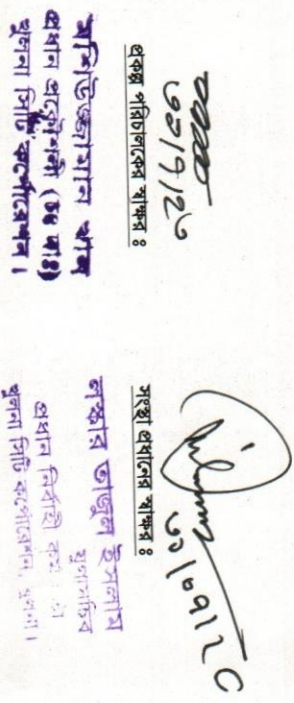 ৩১/৭/২৩
প্রকল্প পরিচালকের স্বাক্ষর :
মশিউজ্জামান খান
প্রধান প্রকৌশলী (চঃ দাঃ)
খুলনা সিটি কর্পোরেশন।
৩১/০৭/২৩
সংস্থা প্রধানের স্বাক্ষর :
লস্কার তাজুল ইসলাম
যুগ্মসচিব
প্রধান নির্বাহী
খুলনা সিটি কর্পোরেশন, খুলনা।